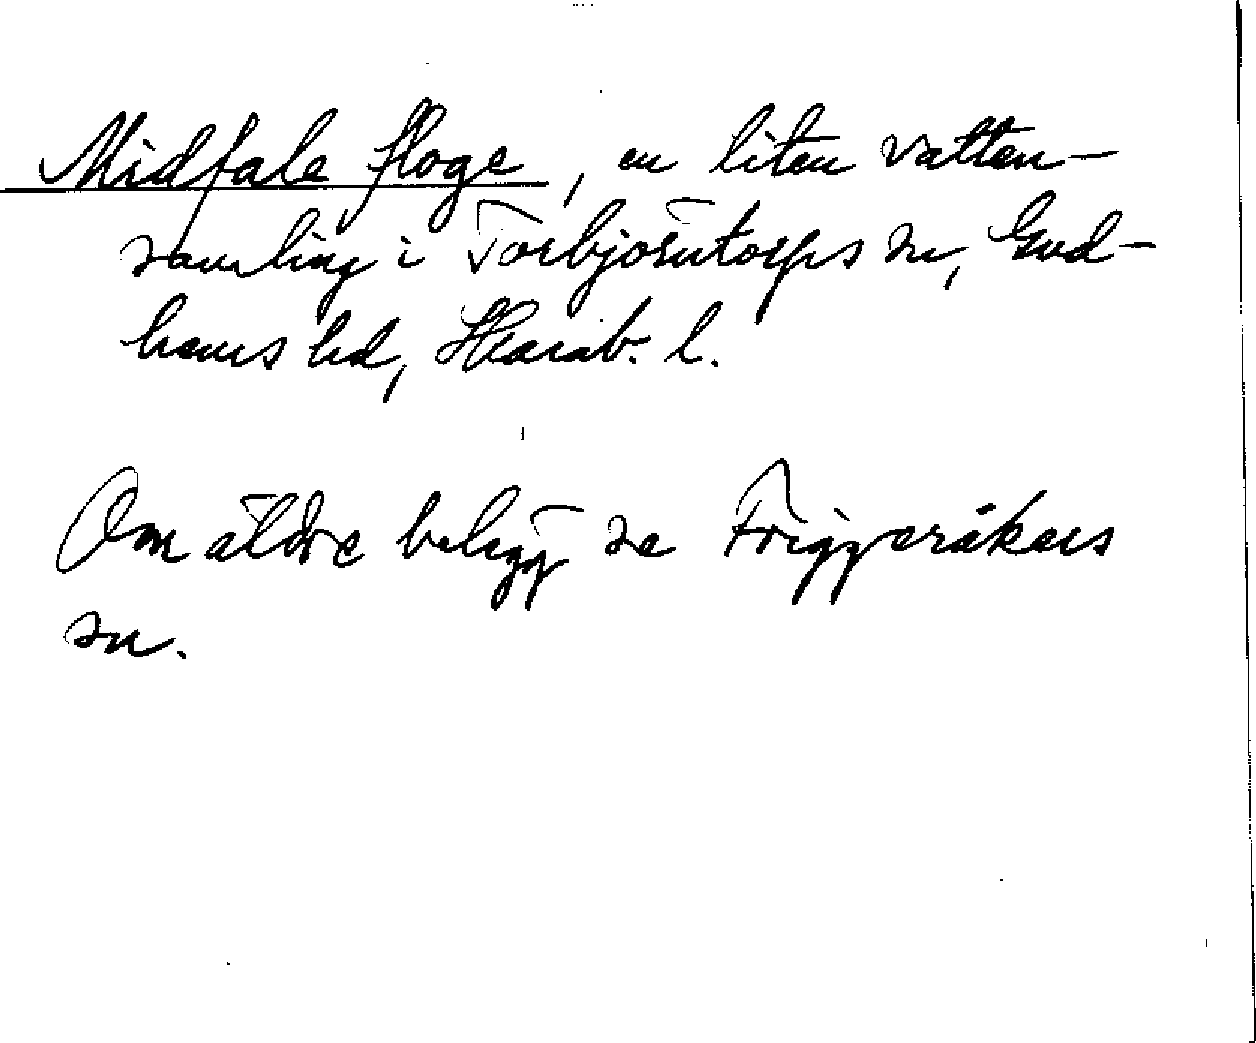 Midfale floge, en liten vatten-
samling i Torbjörntorps sn, Gud-
hems hd, Skarab. l.
Om äldre belägg se Friggeråkers
sn.